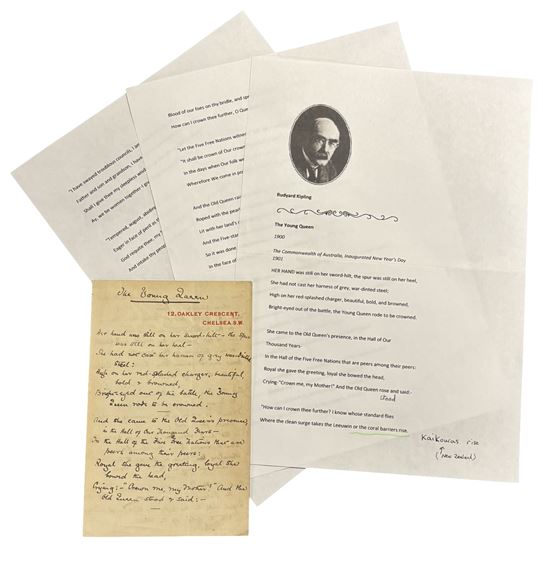 "I have swayed troublous councils, I
Father and son and grandson, I
Shall I give thee my sleepless
Ay, we be women together
"Tempered, august,
Eager in face of peril
God requite thee,
And intake thy people
Blood of our foes on thy bridle, and
How can I crown thee further, O
"Let the Five Free Nations witness
"It shall be crown of Our crown
In the days when Our folk
Wherefore We come in
And the Old Queen
Roped with the pearl
Lit with her land's
And the Five-star
So it was done
In the face of
Rudyard Kipling
The Young Queen
1900
The Commonwealth of Australia, Inaugurated New Year's Day
1901
HER HAND was still on her sword-hilt, the spur was still on her heel,
She had not cast her harness of grey, war-dinted steel;
High on her red-splashed charger, beautiful, bold, and browned,
Bright-eyed out of the battle, the Young Queen rode to be crowned.
She came to the Old Queen's presence, in the Hall of Our
Thousand Years-
In the Hall of the Five Free Nations that are peers among their peers:
Royal she gave the greeting, loyal she bowed the head,
Crying-"Crown me, my Mother!" And the Old Queen rose and said:-
stood
"How can I crown thee further? I know whose standard flies
Where the clean surge takes the Leeuwin or the coral barriers rise.
Kaikouras rise
(New Zealand)
The Young Queen
12, OAKLEY CRESCENT,
CHELSEA. S.W.
Her hand was still on her sword-hilt - the spur
was still on her heel -
She had not cast her harness of grey war-dinted
steel:
High on her red-splashed charger, beautiful,
bold & browned,
Bright-eyed out of the battle, the Young
Queen rode to be crowned.
And she came to the Old Queen's presence,
in the Hall of Our Thousand Years -
In the Hall of the Five Free Nations that are
peers among their peers:
Royal she gave the greeting, loyal she
bowed the head,
Crying:- "Crown me, my Mother!" And the
Old Queen stood & said: -